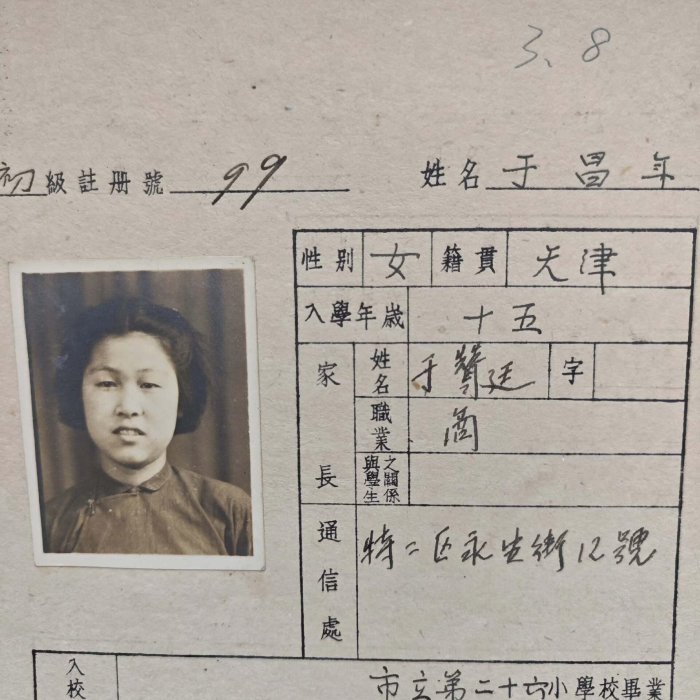 3、8
初級註册號 99
姓名 于昌年
性别 女 籍貫 天津
入學年歲 十五
家長
姓名 于贊廷 字
職業 商
與學生之關係
通信處 特二区永生街12號
入校
市立第二十六小學校畢業